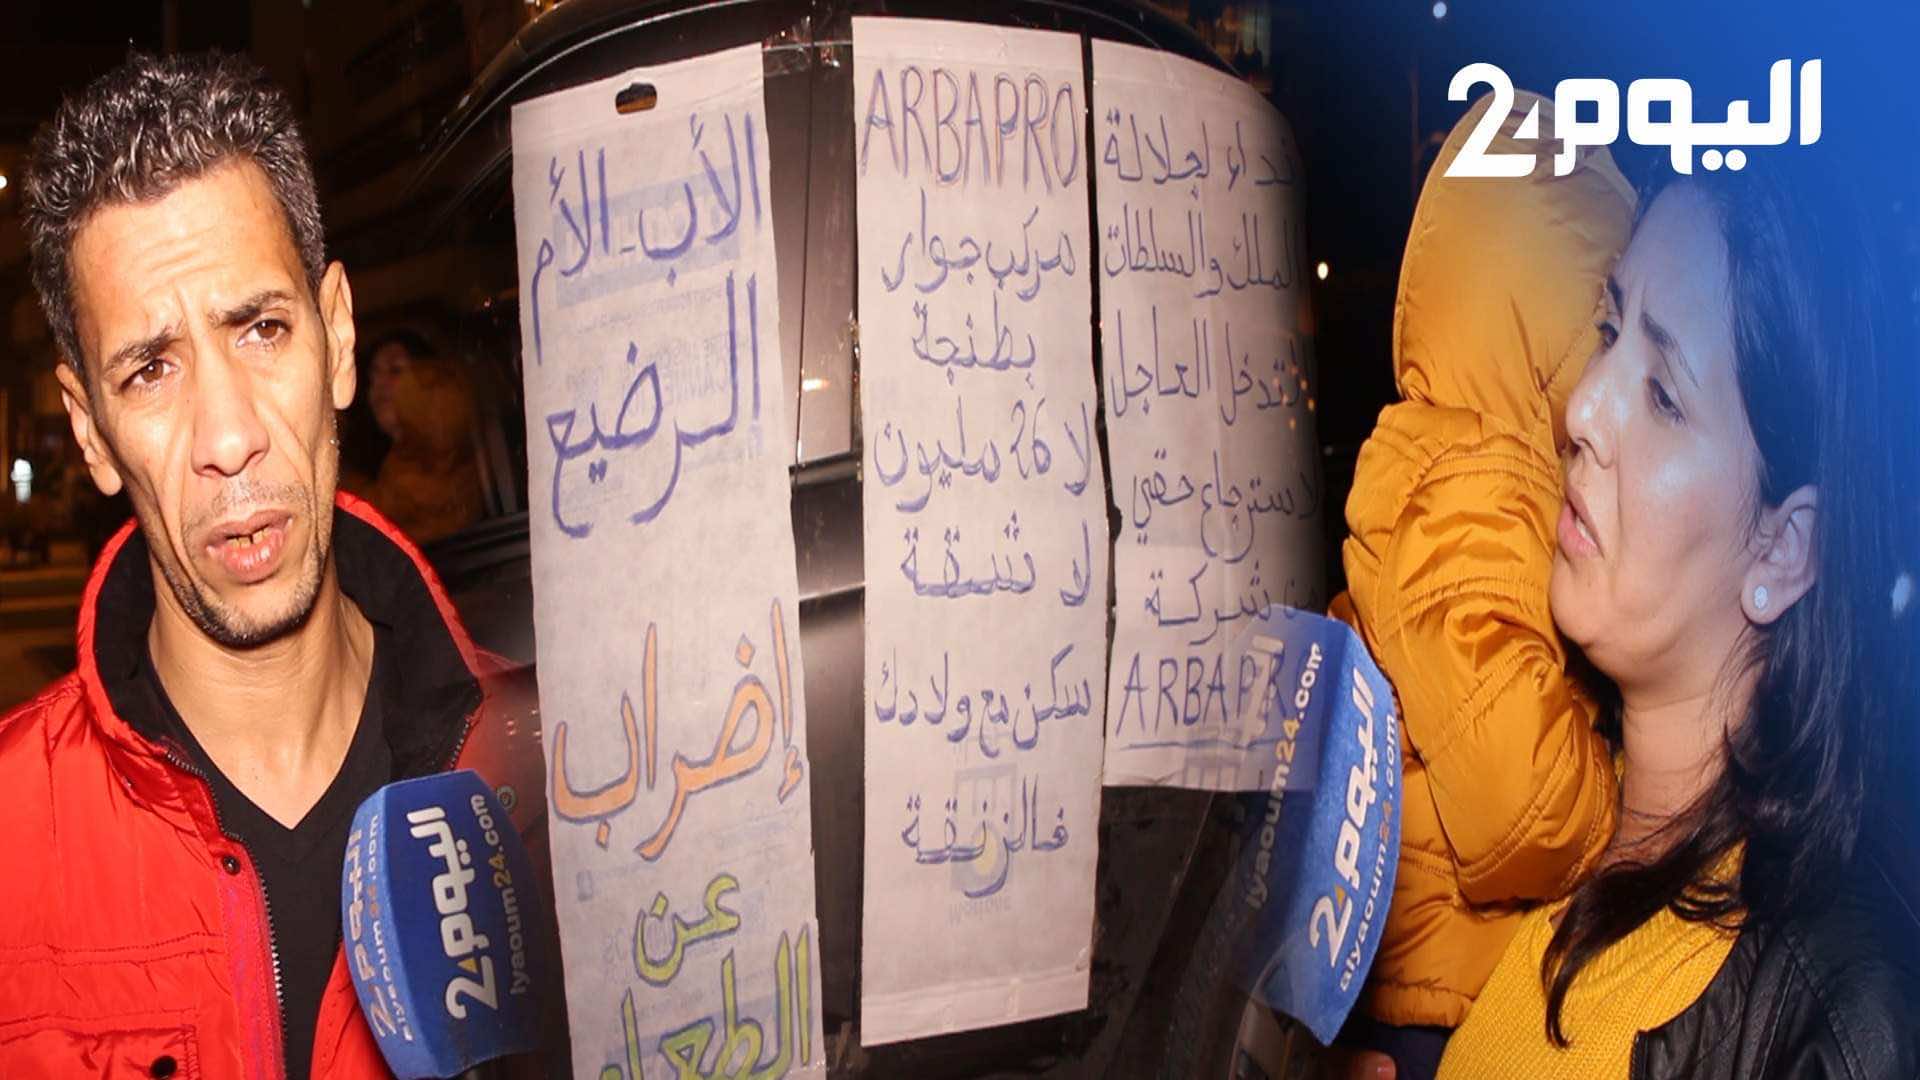 اليوم24
الأب - الأم
الرضيع
إضراب
عن
الطعام
ARBAPRO
مركب جوار
بطنجة
لا 26 مليون
لا شقة
سكن مع ولادك
فالزنقة
نداء لجلالة
الملك والسلطات
للتدخل العاجل
لاسترجاع حقي
من شركة
ARBAPR
اليوم24
alyaoum24.com
اليوم24
lyaoum24.com
اليوم
lyaoum24.com
اليوم24
alyaoum24.com